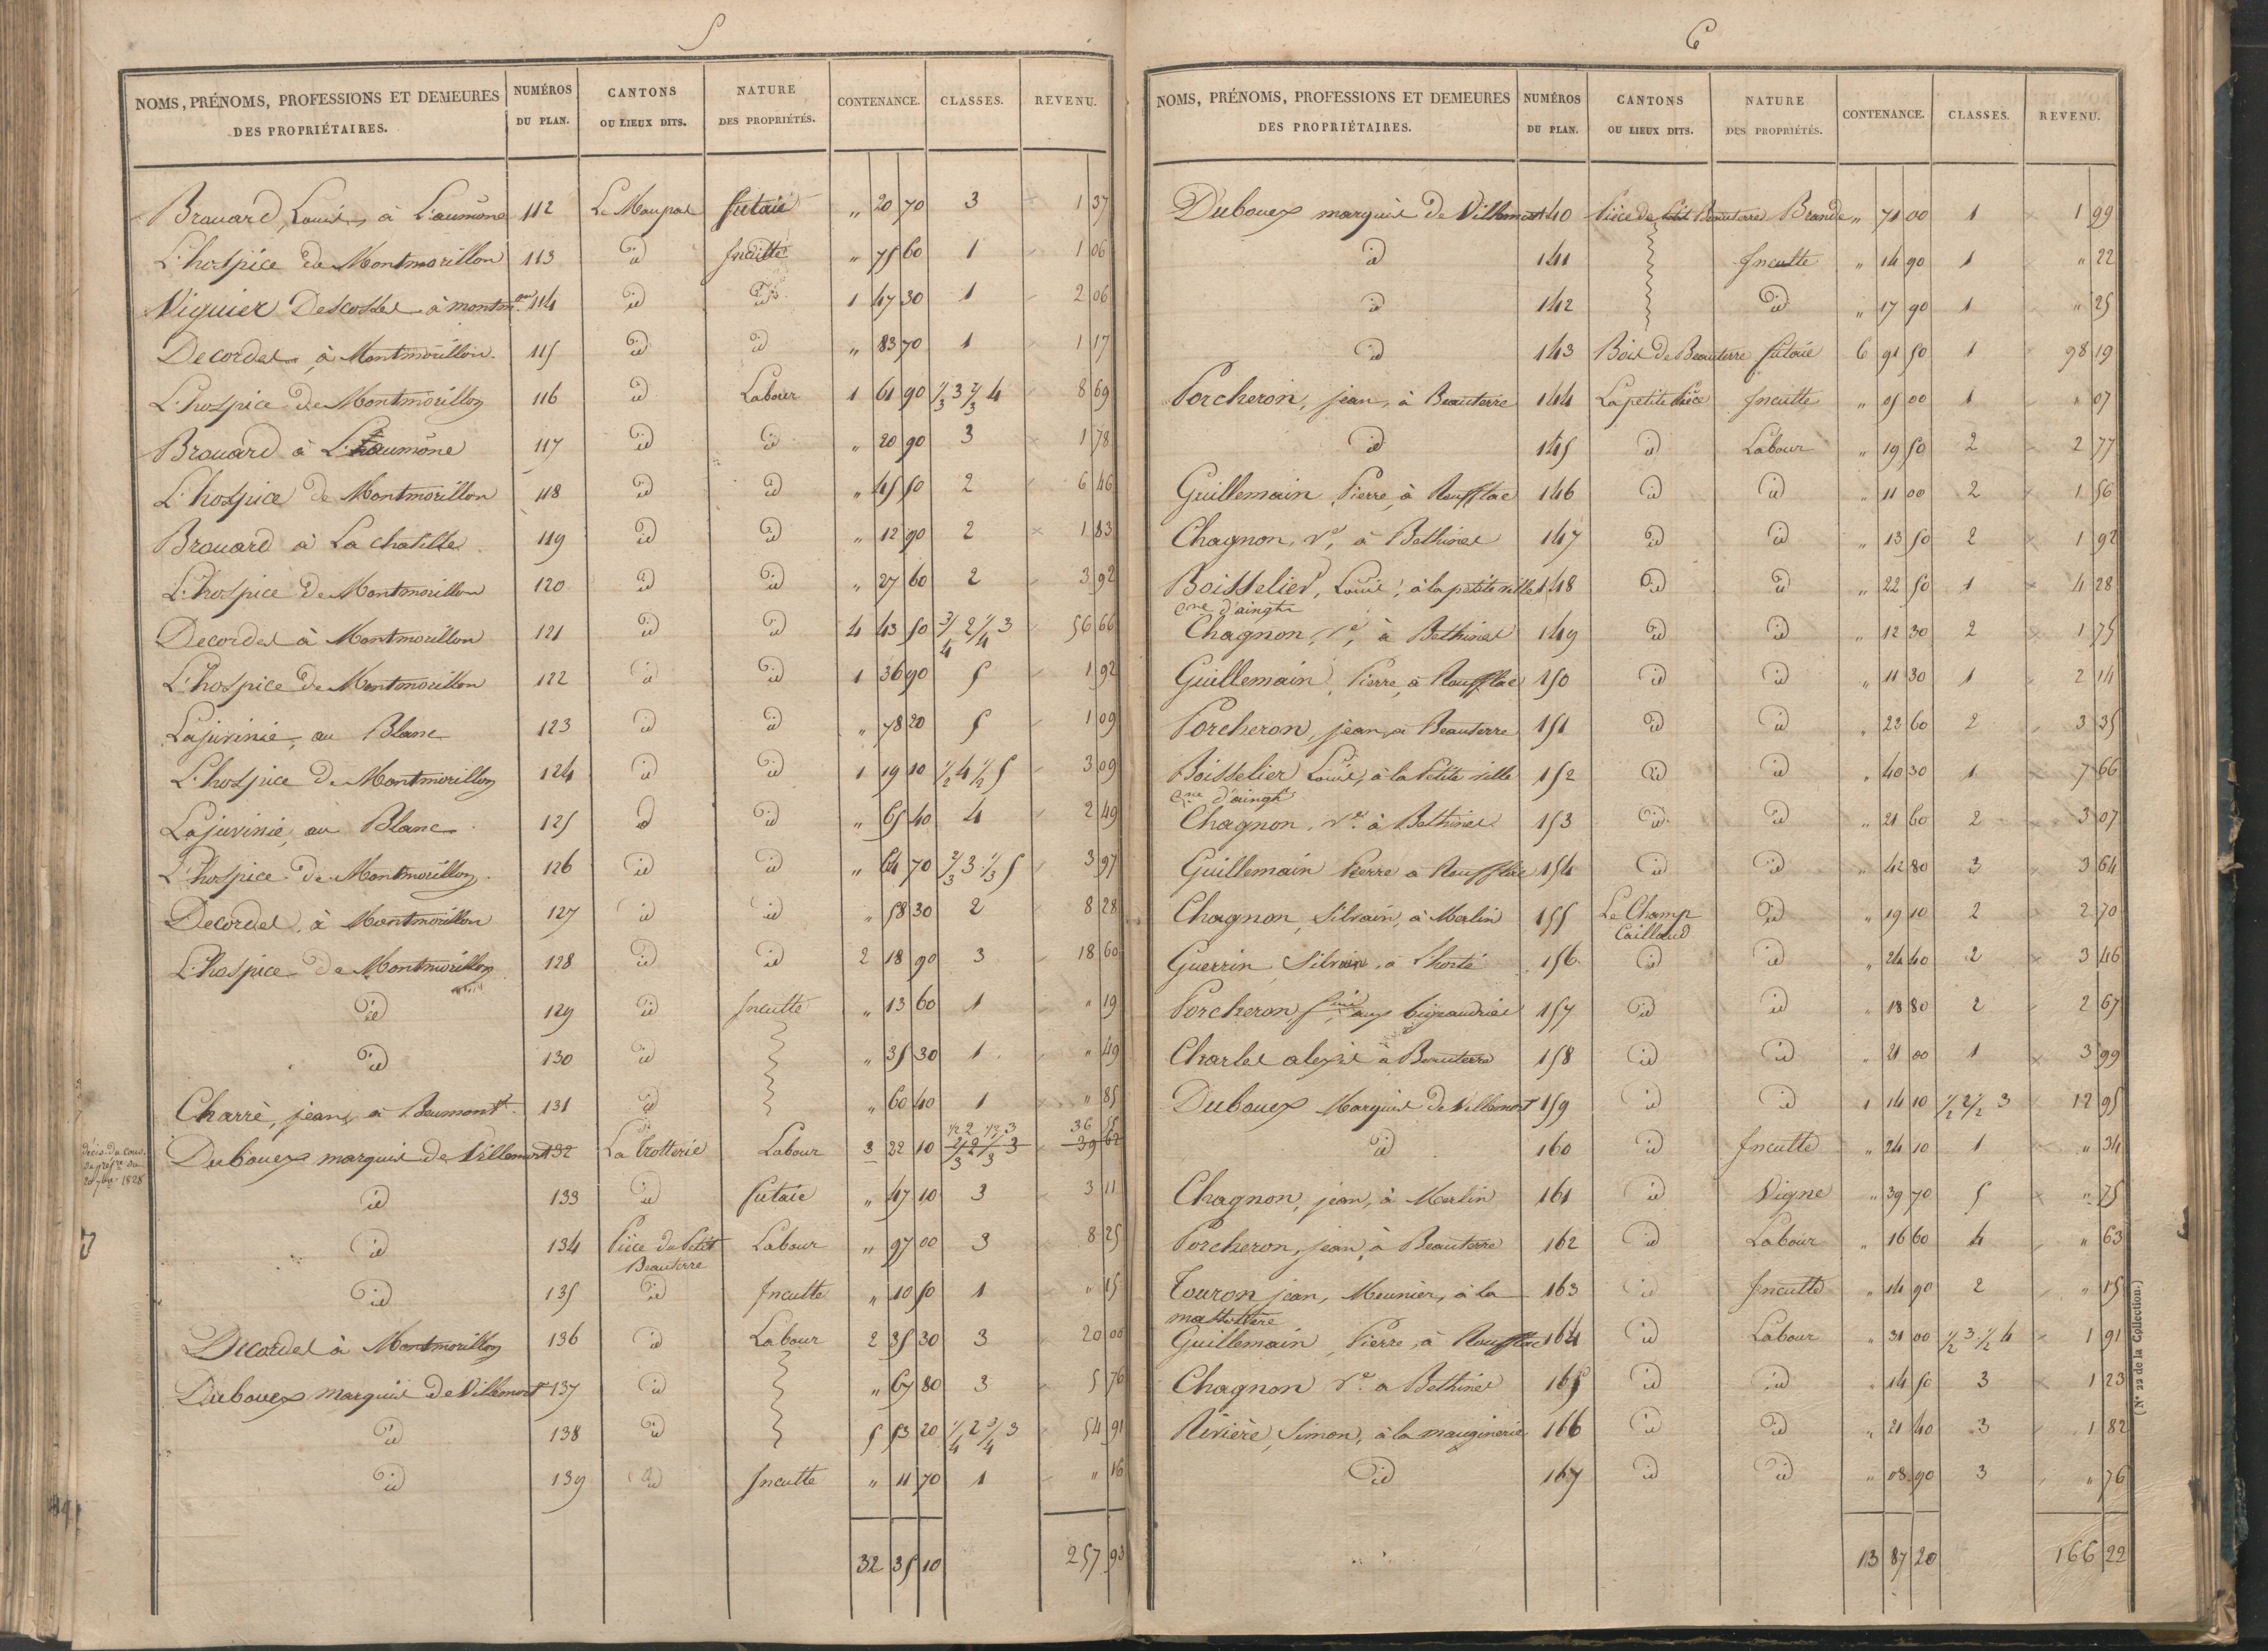 5
NOMS, PRÉNOMS, PROFESSIONS ET DEMEURES DES PROPRIÉTAIRES. NUMÉROS DU PLAN. CANTONS OU LIEUX DITS. NATURE DES PROPRIÉTÉS. CONTENANCE. CLASSES. REVENU.
Brouard, Louis, à L'aumône 112 Le Maupas futaie " 20 70 3 1 37
L'hospice de Montmorillon 113 id Inculte " 75 60 1 1 06
Viguier Descosses à montm.on 114 id id 1 47 30 1 2 06
Decordes, à Montmorillon 115 id id " 83 70 1 1 17
L'hospice de Montmorillon 116 id Labour 1 61 90 1/3 3 2/3 4 8 69
Brouard à L'aumône 117 id id " 20 90 3 1 78
L'hospice de Montmorillon 118 id id " 45 50 2 6 46
Brouard à La chatille 119 id id " 12 90 2 1 83
L'hospice de Montmorillon 120 id id " 27 60 2 3 92
Decordes à Montmorillon 121 id id 4 43 50 3/4 2 1/4 3 56 66
L'hospice de Montmorillon 122 id id 1 36 90 5 1 92
Lajuvinie, au Blanc 123 id id " 78 20 5 1 09
L'hospice de Montmorillon 124 id id 1 19 10 1/2 4 1/2 5 3 09
Lajuvinie, au Blanc 125 id id " 65 40 4 2 49
L'hospice de Montmorillon 126 id id " 64 70 2/3 3 1/3 5 3 97
Decordes, à Montmorillon 127 id id " 58 30 2 8 28
L'hospice de Montmorillon 128 id id 2 18 90 3 18 60
id 129 id Inculte " 13 60 1 " 19
id 130 id " 35 30 1 " 49
Charré, jean, à Beumont 131 id " 60 40 1 " 85
1/2 2 1/2 3 36 55
Dubouex marquis de Villemort 132 La Trotterie Labour 3 22 10 2/3 2 1/3 3 39 62
décis. du cons. de préf.re du 20 7bre 1828
id 133 id futaie " 47 10 3 3 11
id 134 Pièce du Petit Beauterre Labour " 97 00 3 8 25
id 135 id Inculte " 10 50 1 " 15
Decordes à Montmorillon 136 id Labour 2 35 30 3 20 00
Dubouex marquis de Villemort 137 id " 67 80 3 5 76
id 138 id 5 53 20 1/4 2 3/4 3 54 91
id 139 id Inculte " 11 70 1 " 16
32 35 10 257 93
6
NOMS, PRÉNOMS, PROFESSIONS ET DEMEURES DES PROPRIÉTAIRES. NUMÉROS DU PLAN. CANTONS OU LIEUX DITS. NATURE DES PROPRIÉTÉS. CONTENANCE. CLASSES. REVENU.
Dubouex marquis de Villemort 140 Pièce de Petit Beauterre Brande " 71 00 1 1 99
id 141 Inculte " 14 90 1 " 22
id 142 id " 17 90 1 " 25
id 143 Bois de Beauterre futaie 6 91 50 1 98 19
Porcheron, jean, à Beauterre 144 La petite Pièce Inculte " 05 00 1 " 07
id 145 id Labour " 19 50 2 2 77
Guillemain, Pierre, à Roufflac 146 id id " 11 00 2 1 56
Chagnon, Ve, à Bethines 147 id id " 13 50 2 1 92
Boisselier, Louis, à la petite ville 148 id id " 22 50 1 4 28
cne d'aingts
Chagnon, Ve, à Bethines 149 id id " 12 30 2 1 75
Guillemain, Pierre, à Roufflac 150 id id " 11 30 1 2 14
Porcheron, jean, à Beauterre 151 id id " 22 60 2 3 35
Boisselier Louis, à la Petite ville 152 id id " 40 30 1 7 66
cne d'aingts
Chagnon, Ve à Bethines 153 id id " 21 60 2 3 07
Guillemain Pierre à Roufflac 154 id id " 42 80 3 3 64
Chagnon, Silvain, à Merlin 155 Le Champ Caillaud id " 19 10 2 2 70
Guerrin, Silvain, à L'horté 156 id id " 24 40 2 3 46
Porcheron, aux bigeaudries 157 id id " 18 80 2 2 67
Charles alexis à Beauterre 158 id id " 21 00 1 3 99
Dubouex Marquis de Villemort 159 id id 1 14 10 1/2 2 1/2 3 12 95
id 160 id Inculte " 24 10 1 " 34
Chagnon, jean, à Merlin 161 id Vigne " 39 70 5 " 75
Porcheron, jean, à Beauterre 162 id Labour " 16 60 4 " 63
Touron jean, Meunier, à la 163 id Inculte " 14 90 2 " 15
Guillemain, Pierre, à Roufflac 164 id Labour " 31 00 1/2 3 1/2 4 1 91
Chagnon Ve à Bethines 165 id id " 14 50 3 1 23
Rivière, Simon, à la mauginerie 166 id id " 21 40 3 1 82
id 167 id id " 08 90 3 " 76
13 87 20 166 22
(N° 22 de la Collection.)